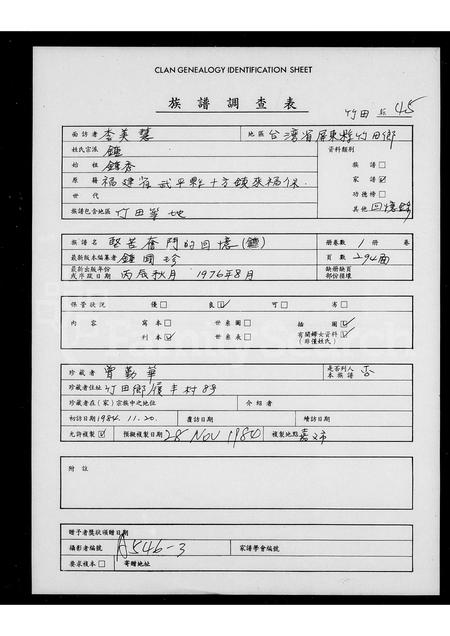 CLAN GENEALOGY IDENTIFICATION SHEET
族譜調查表
竹田 45
面訪者 李美慧 地區 台灣省屏東縣竹田鄉
姓氏宗派 鍾 資料類別
始祖 鍾秀 族譜□
原籍 福建省武平縣十方鎮來福保 家譜☑
世代 功德榜□
族譜包含地區 竹田等地 其他 回憶錄
族譜名 堅苦奮鬥的回憶(鍾) 冊卷數 1 冊 卷
最新版本編纂者 鍾國珍 頁數 294面
最新出版年份或序跋日期 丙辰秋月 1976年8月 缺冊缺頁部份損壞
保管狀況 優□ 良☑ 可□ 劣□
內容 寫本□ 世系圖□ 插圖☑
刊本☑ 世系表□ 有關婦女資料☑(非僅姓氏)
珍藏者 曾勤華 是否列入本族譜 否
珍藏者住址 竹田鄉履丰村83号
珍藏者在(家)宗族中之地位 介紹者
初訪日期 1984.11.20. 覆訪日期 續訪日期
允許複製☑ 預擬複製日期 28 NOV 1984 複製地點 嘉义市
附註
贈予者獎狀頒贈日期
攝影者編號 A546-3 家譜學會編號
要求複本□ 寄贈地址
FamilySearch